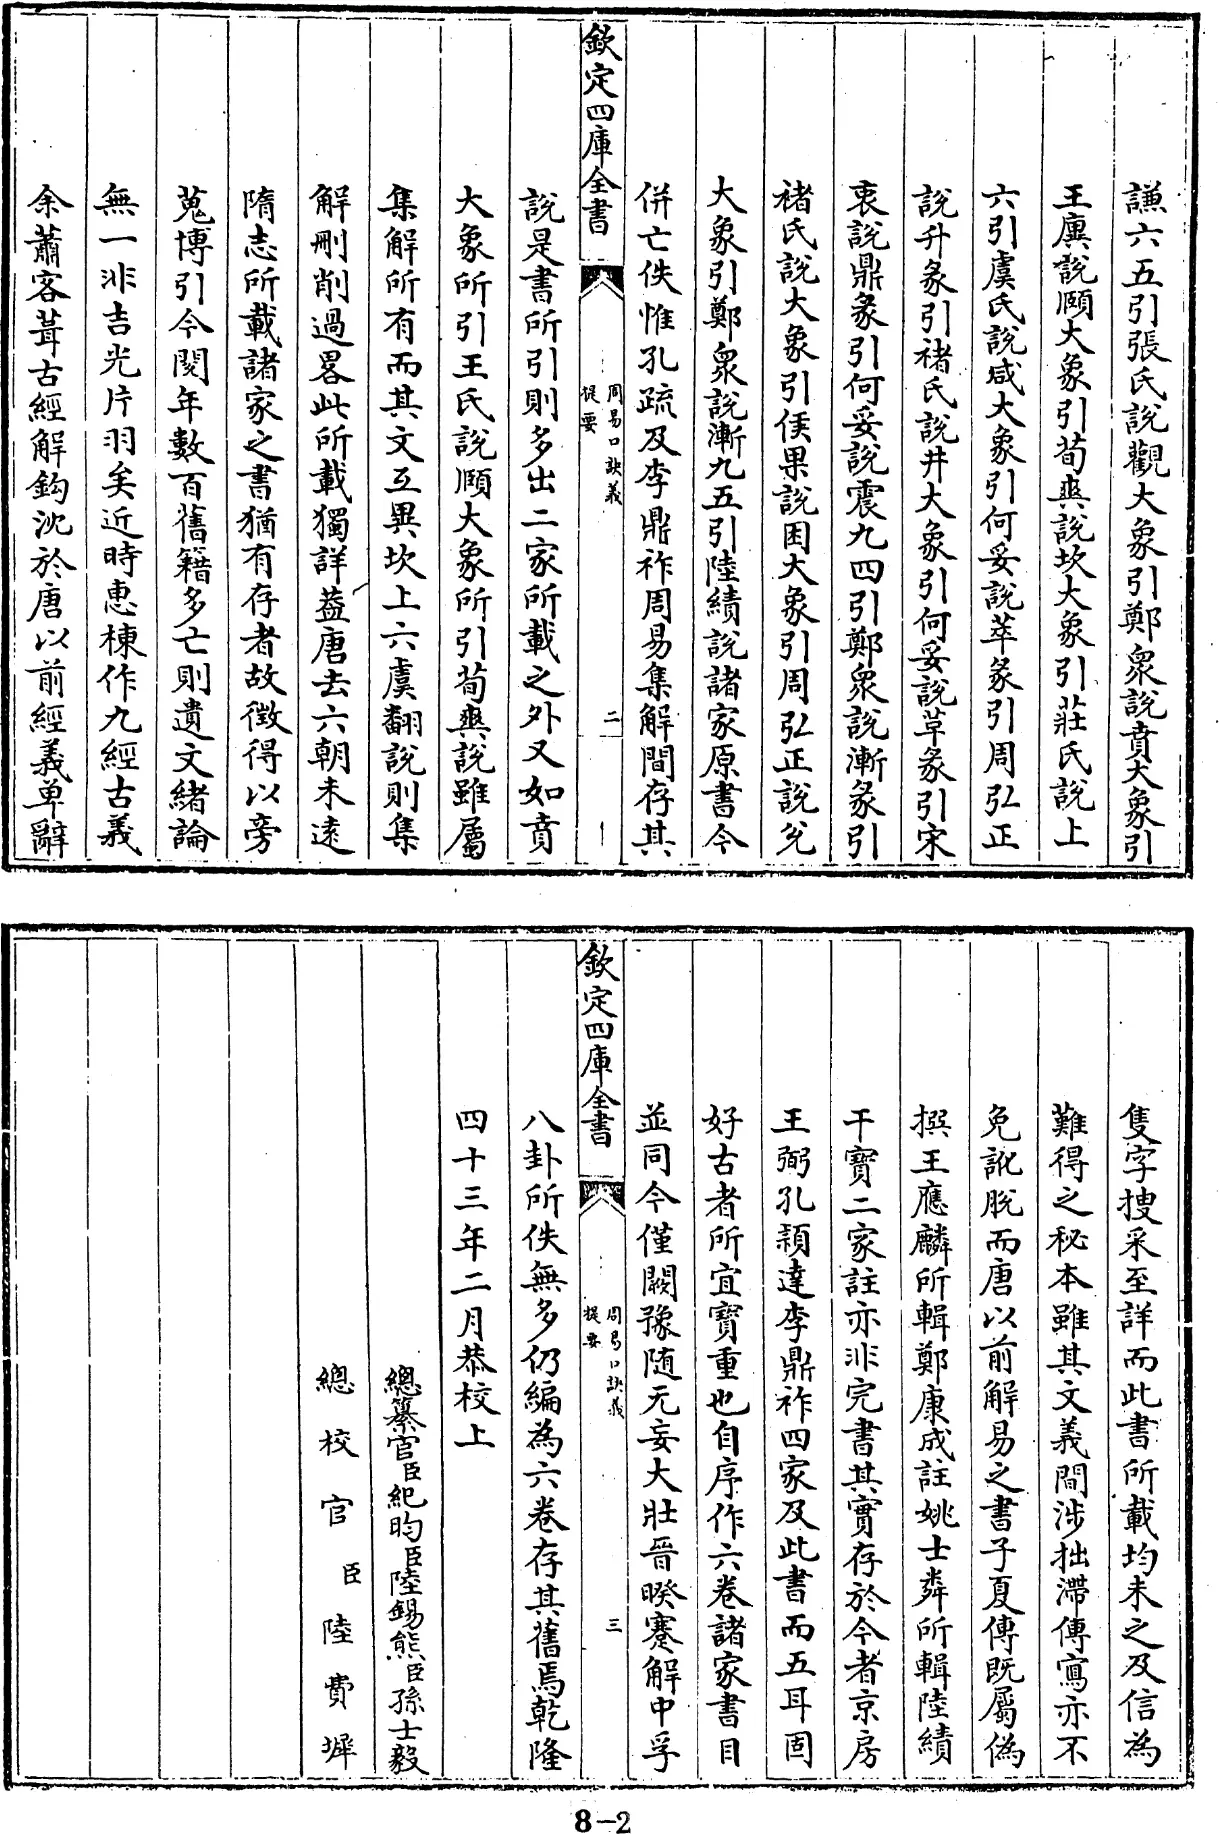 謙六五引張氏說觀大象引鄭衆說賁大象引
王廙說頤大象引荀爽說坎大象引莊氏說上
六引虞氏說咸大象引何妥說萃彖引周弘正
說升彖引禇氏說井大象引何妥說革彖引宋
衷說鼎彖引何妥說震九四引鄭衆說漸彖引
禇氏說大象引侯果說困大象引周弘正說兌
大象引鄭衆說漸九五引陸績說諸家原書今
併亡佚惟孔疏及李鼎祚周易集解間存其
欽定四庫全書
周易口訣義
提要
二
說是書所引則多出二家所載之外又如賁
大象所引王氏說頤大象所引荀爽說雖屬
集解所有而其文互異坎上六虞翻說則集
解刪削過畧此所載獨詳葢唐去六朝未遠
隋志所載諸家之書猶有存者故徵得以旁
蒐博引今閱年數百舊籍多亡則遺文緒論
無一非吉光片羽矣近時惠棟作九經古義
余蕭客葺古經解鈎沈於唐以前經義單辭
隻字搜采至詳而此書所載均未之及信為
難得之秘本雖其文義間涉拙滯傳寫亦不
免訛脫而唐以前解易之書子夏傳既屬偽
撰王應麟所輯鄭康成註姚士粦所輯陸績
干寶二家註亦非完書其實存於今者京房
王弼孔穎達李鼎祚四家及此書而五耳固
好古者所宜寶重也自序作六卷諸家書目
並同今僅闕豫隨无妄大壯晉暌蹇解中孚
欽定四庫全書
周易口訣義
提要
三
八卦所佚無多仍編為六卷存其舊焉乾隆
四十三年二月恭校上
總纂官臣紀昀臣陸錫熊臣孫士毅
總校官臣陸費墀
8-2